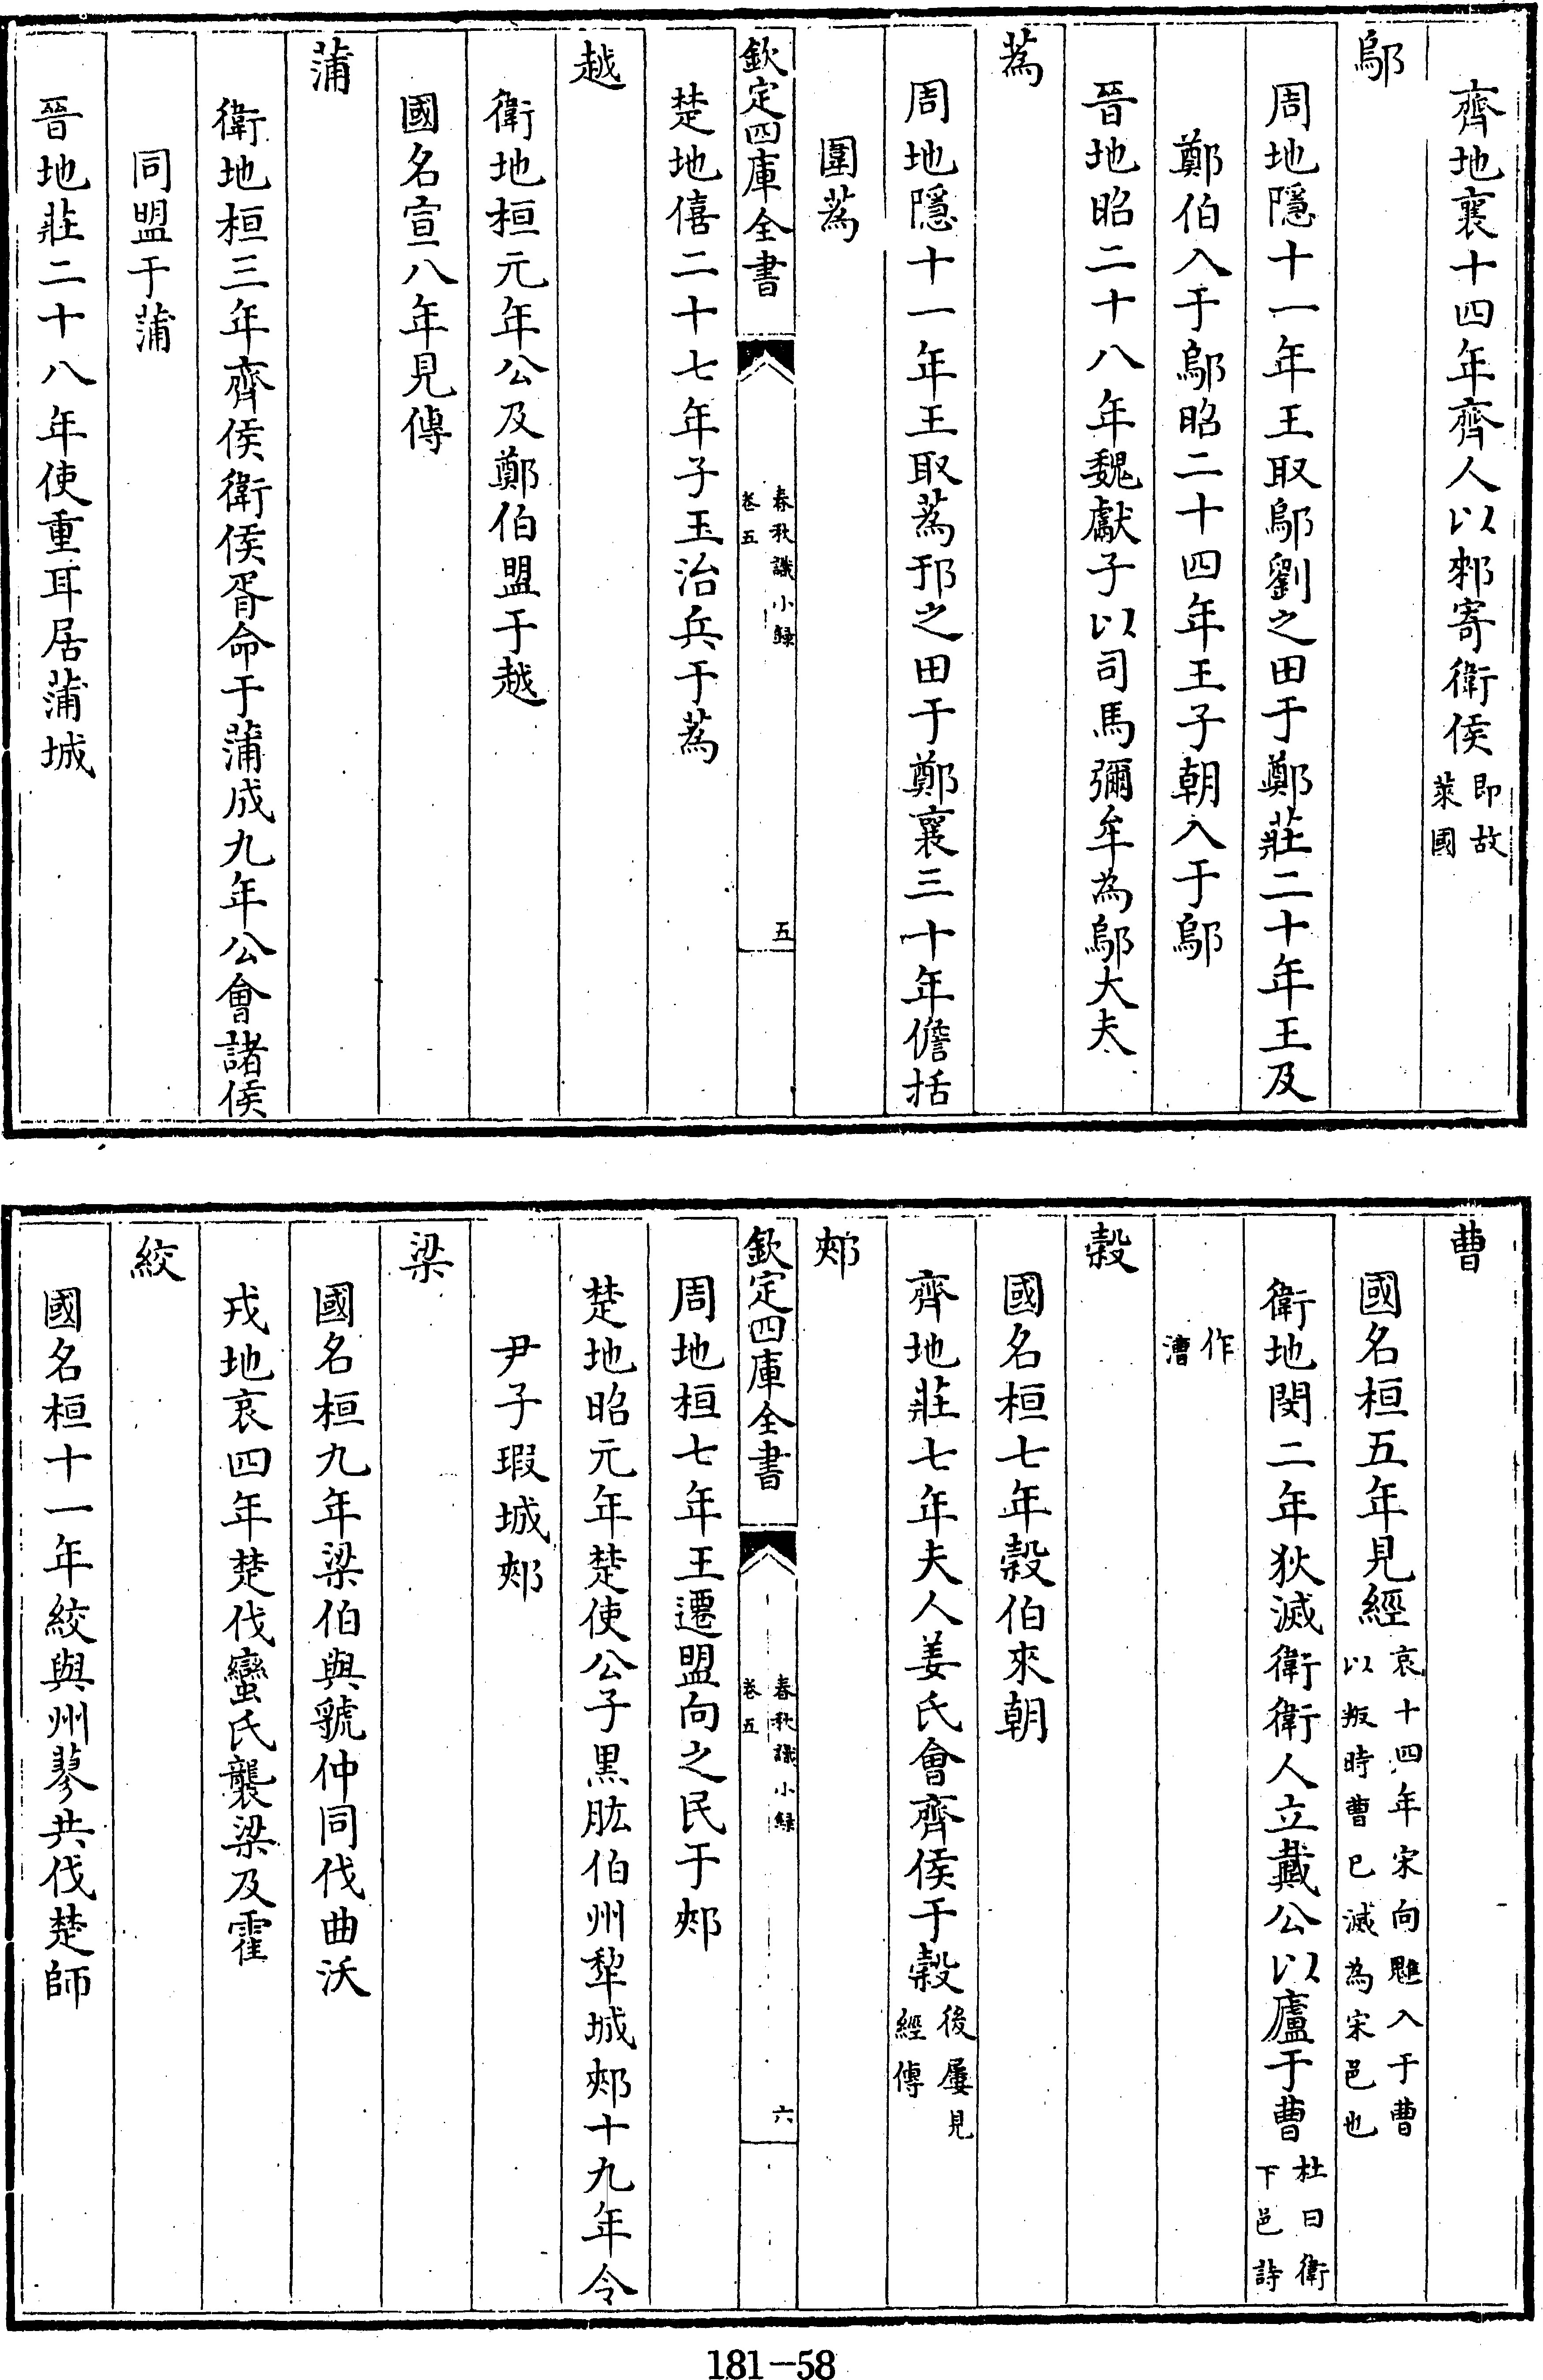 齊地襄十四年齊人以郲寄衛侯即故
萊國
鄔
周地隱十一年王取鄔劉之田于鄭莊二十年王及
鄭伯入于鄔昭二十四年王子朝入于鄔
晉地昭二十八年魏獻子以司馬彌牟為鄔大夫
蒍
周地隱十一年王取蒍邘之田于鄭襄三十年儋括
圍蒍
欽定四庫全書
春秋識小録
卷五
五
楚地僖二十七年子玉治兵于蒍
越
衛地桓元年公及鄭伯盟于越
國名宣八年見傳
蒲
衛地桓三年齊侯衛侯胥命于蒲成九年公會諸侯
同盟于蒲
晉地莊二十八年使重耳居蒲城
曹
國名桓五年見經哀十四年宋向魋入于曹
以叛時曹已滅為宋邑也
衛地閔二年狄滅衛衛人立戴公以廬于曹杜曰衛
下邑詩
作
漕
穀
國名桓七年穀伯來朝
齊地莊七年夫人姜氏會齊侯于穀後屢見
經傳
郟
欽定四庫全書
春秋識小録
卷五
六
周地桓七年王遷盟向之民于郟
楚地昭元年楚使公子黒肱伯州犂城郟十九年令
尹子瑕城郟
梁
國名桓九年梁伯與虢仲同伐曲沃
戎地哀四年楚伐蠻氏襲梁及霍
絞
國名桓十一年絞與州蓼共伐楚師
181-58